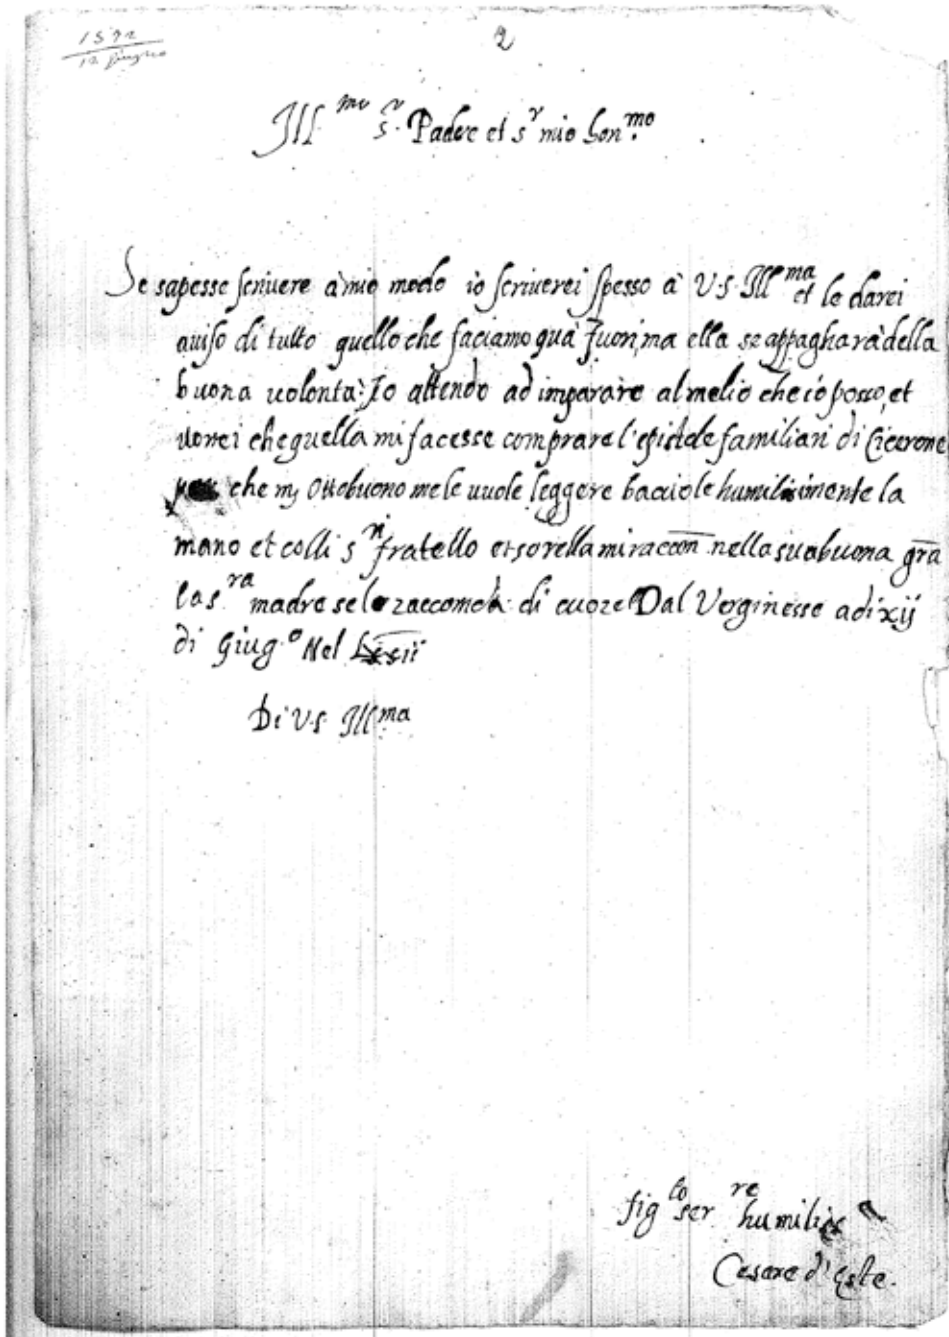 1572
12 giugno
2
Ill mo s r Padre et s r mio hon mo
Se sapesse scriuere à mio modo io scriuerei spesso à V.S. Ill ma et le darei
auiso di tutto quello che faciamo quà fuori, ma ella se appagharà della
buona uolontà: Io attendo ad imparare al melio che io posso, et
uorrei che quella mi facesse comprare l'epistole familiari di Cicerone
che m Ottobuono me le uuole leggere bacciole humilimente la
mano et colli s ri fratello et sorella mi raccon nella sua buona gra
la s ra madre se le raccomda di cuore Dal Verginesse adi xij
di Giug o Nel
Di V.S. Ill ma
fig lo ser re humilis
Cesare d'Este.